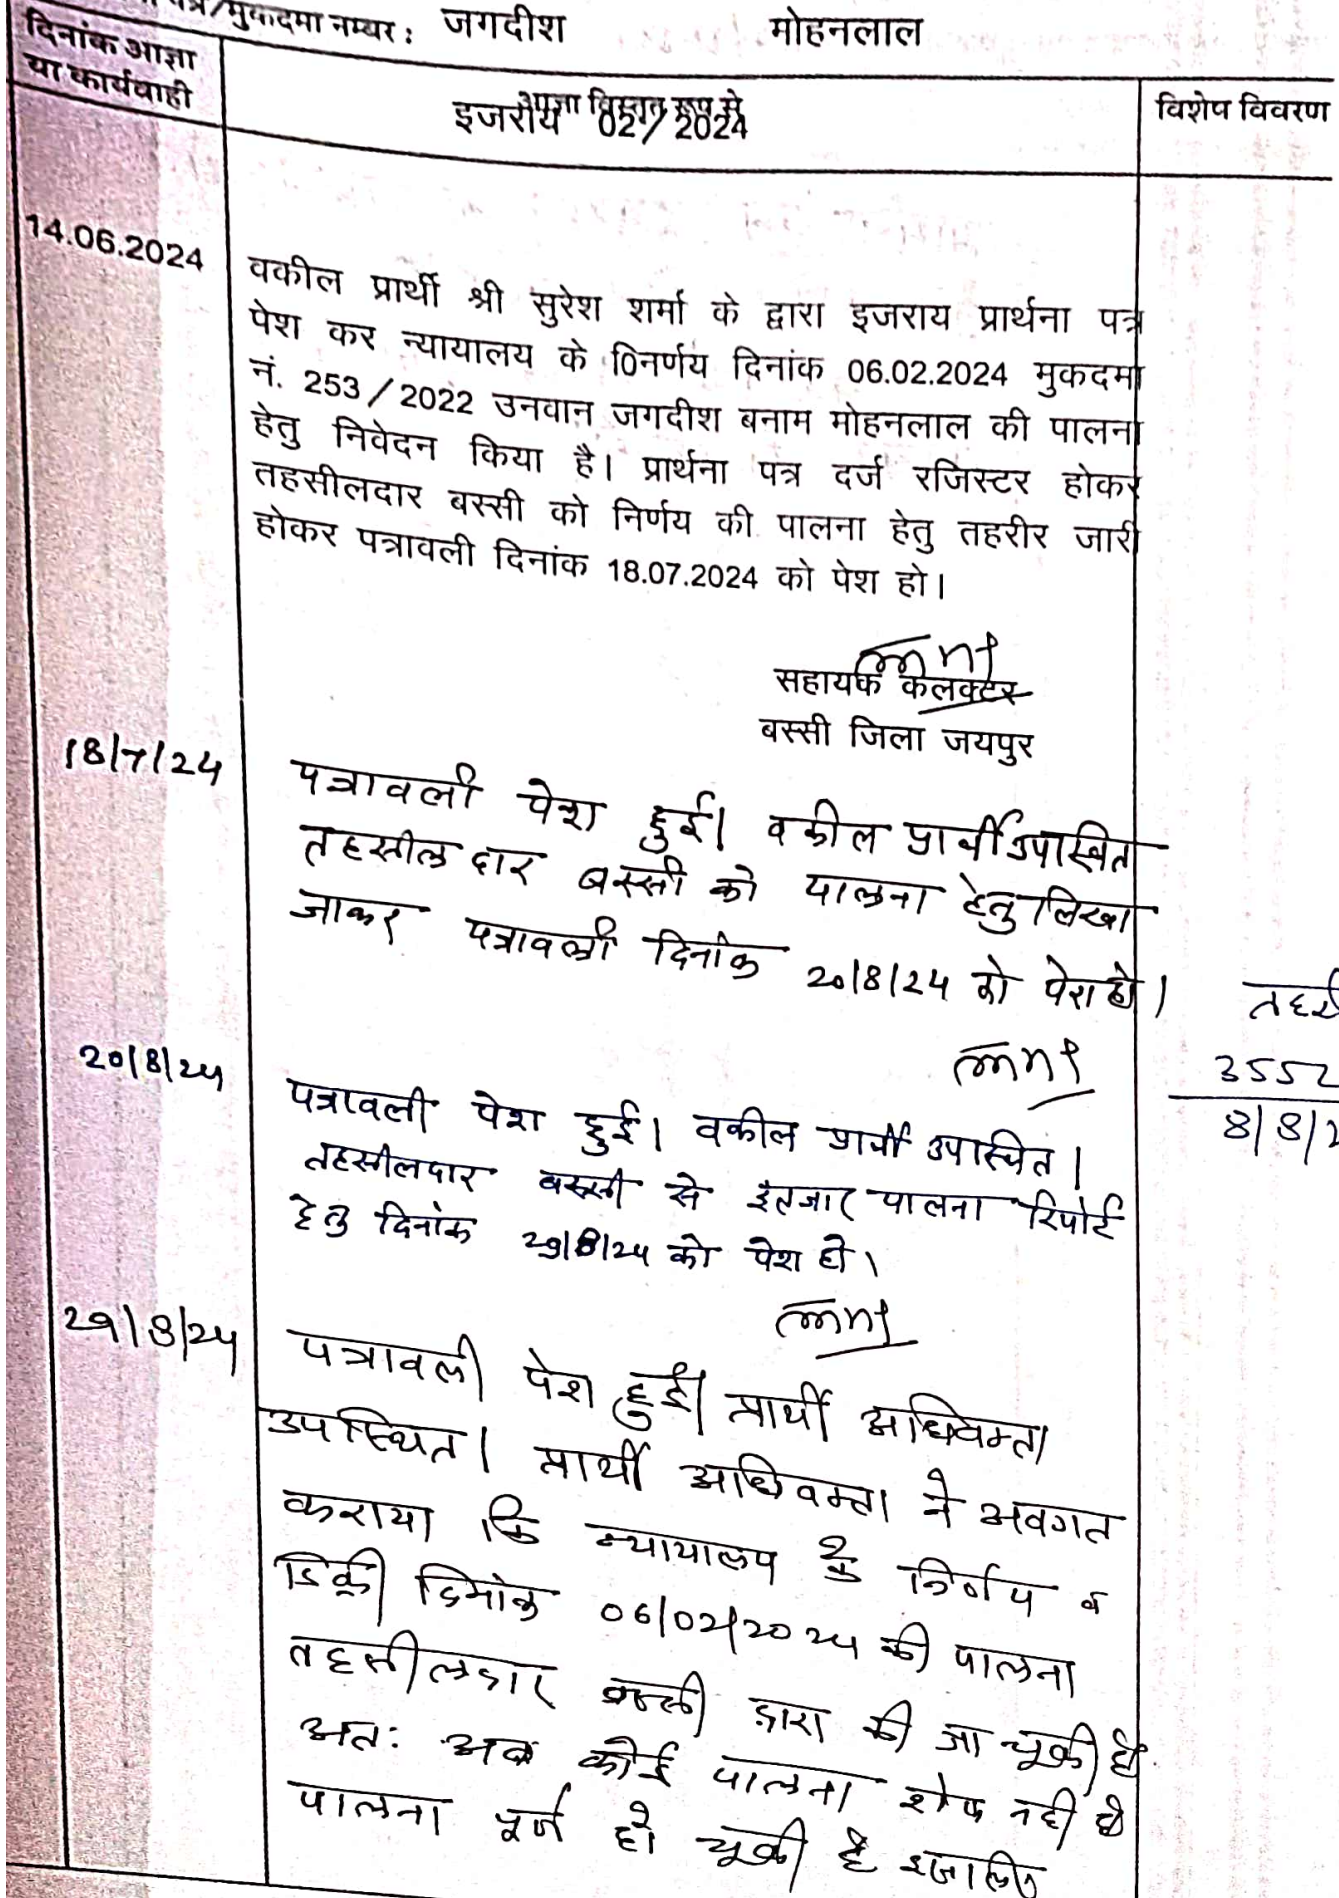 पत्र/मुकदमा नम्बर : जगदीश मोहनलाल
दिनांक आज्ञा
या कार्यवाही
आज्ञा विस्तृत रूप से
इजराय 02/2024
विशेष विवरण
14.06.2024
वकील प्रार्थी श्री सुरेश शर्मा के द्वारा इजराय प्रार्थना पत्र
पेश कर न्यायालय के निर्णय दिनांक 06.02.2024 मुकदमा
नं. 253/2022 उनवान जगदीश बनाम मोहनलाल की पालना
हेतु निवेदन किया है। प्रार्थना पत्र दर्ज रजिस्टर होकर
तहसीलदार बस्सी को निर्णय की पालना हेतु तहरीर जारी
होकर पत्रावली दिनांक 18.07.2024 को पेश हो।
सहायक कलक्टर
बस्सी जिला जयपुर
18/7/24
पत्रावली पेश हुई। वकील प्रार्थी उपस्थित
तहसीलदार बस्सी को पालना हेतु लिखा
जाकर पत्रावली दिनांक 20/8/24 को पेश हो।
3552
8/8/2
20/8/24
पत्रावली पेश हुई। वकील प्रार्थी उपस्थित।
तहसीलदार बस्सी से इंतजार पालना रिपोर्ट
हेतु दिनांक 29/8/24 को पेश हो।
29/8/24
पत्रावली पेश हुई। प्रार्थी अधिवक्ता
उपस्थित। प्रार्थी अधिवक्ता ने अवगत
कराया कि न्यायालय के निर्णय व
डिक्री दिनांक 06/02/2024 की पालना
तहसीलदार बस्सी द्वारा की जा चूकी है
अतः अब कोई पालना शेष नही है
पालना पूर्ण हो चूकी है